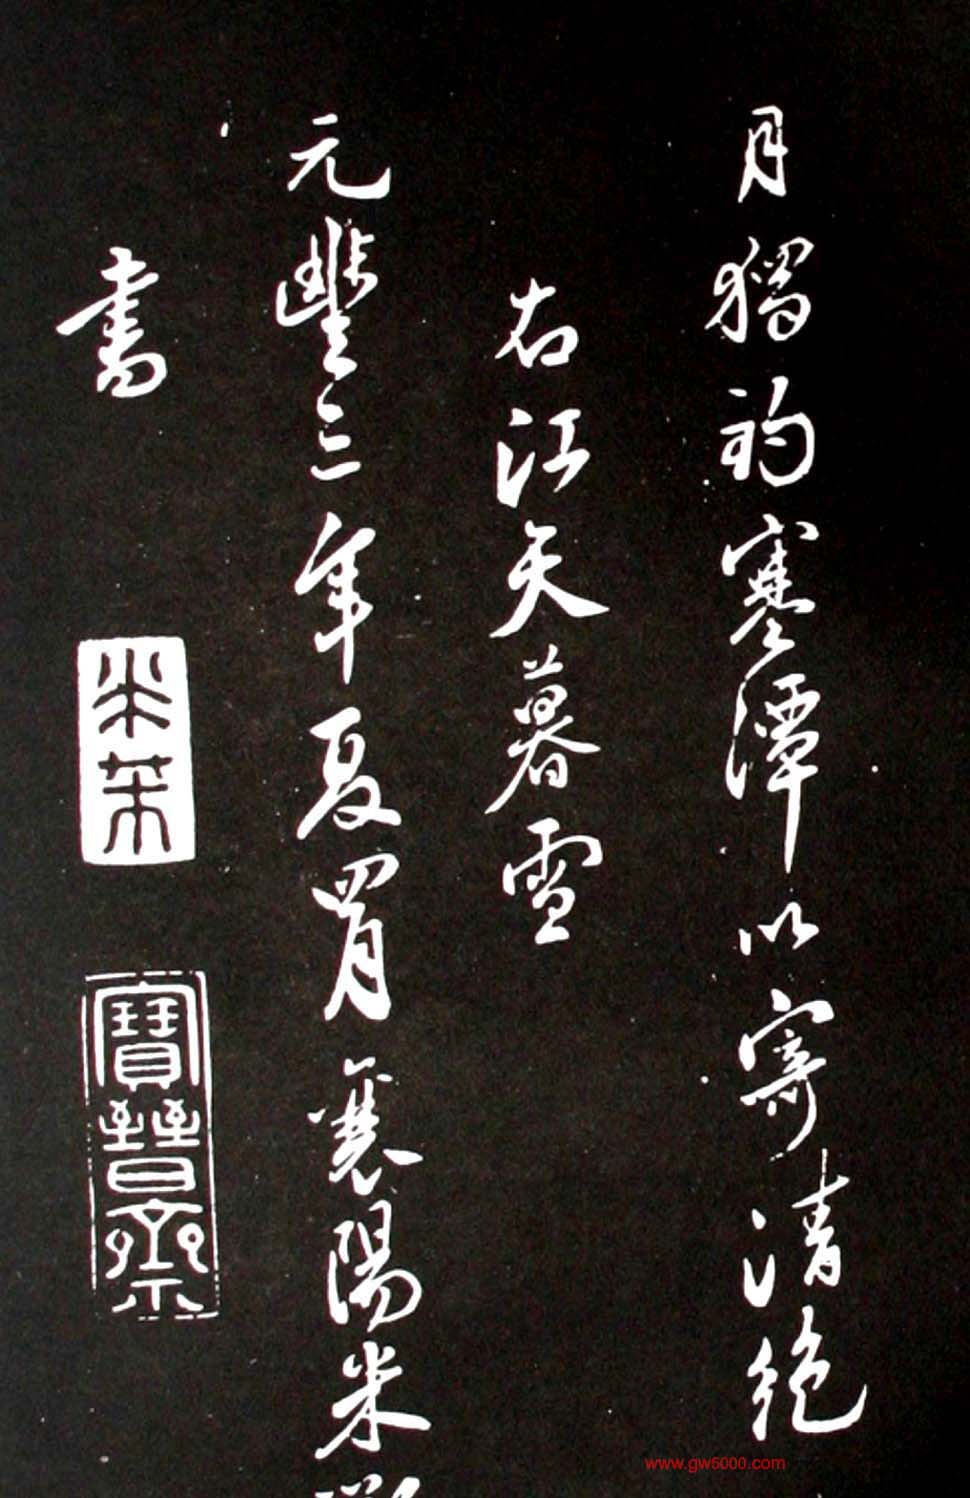 月獨釣寒潭以寄清絶
右江天暮雪
元豐三年夏四月襄陽米
書
米芾
寶晉齋
www.gw5000.com